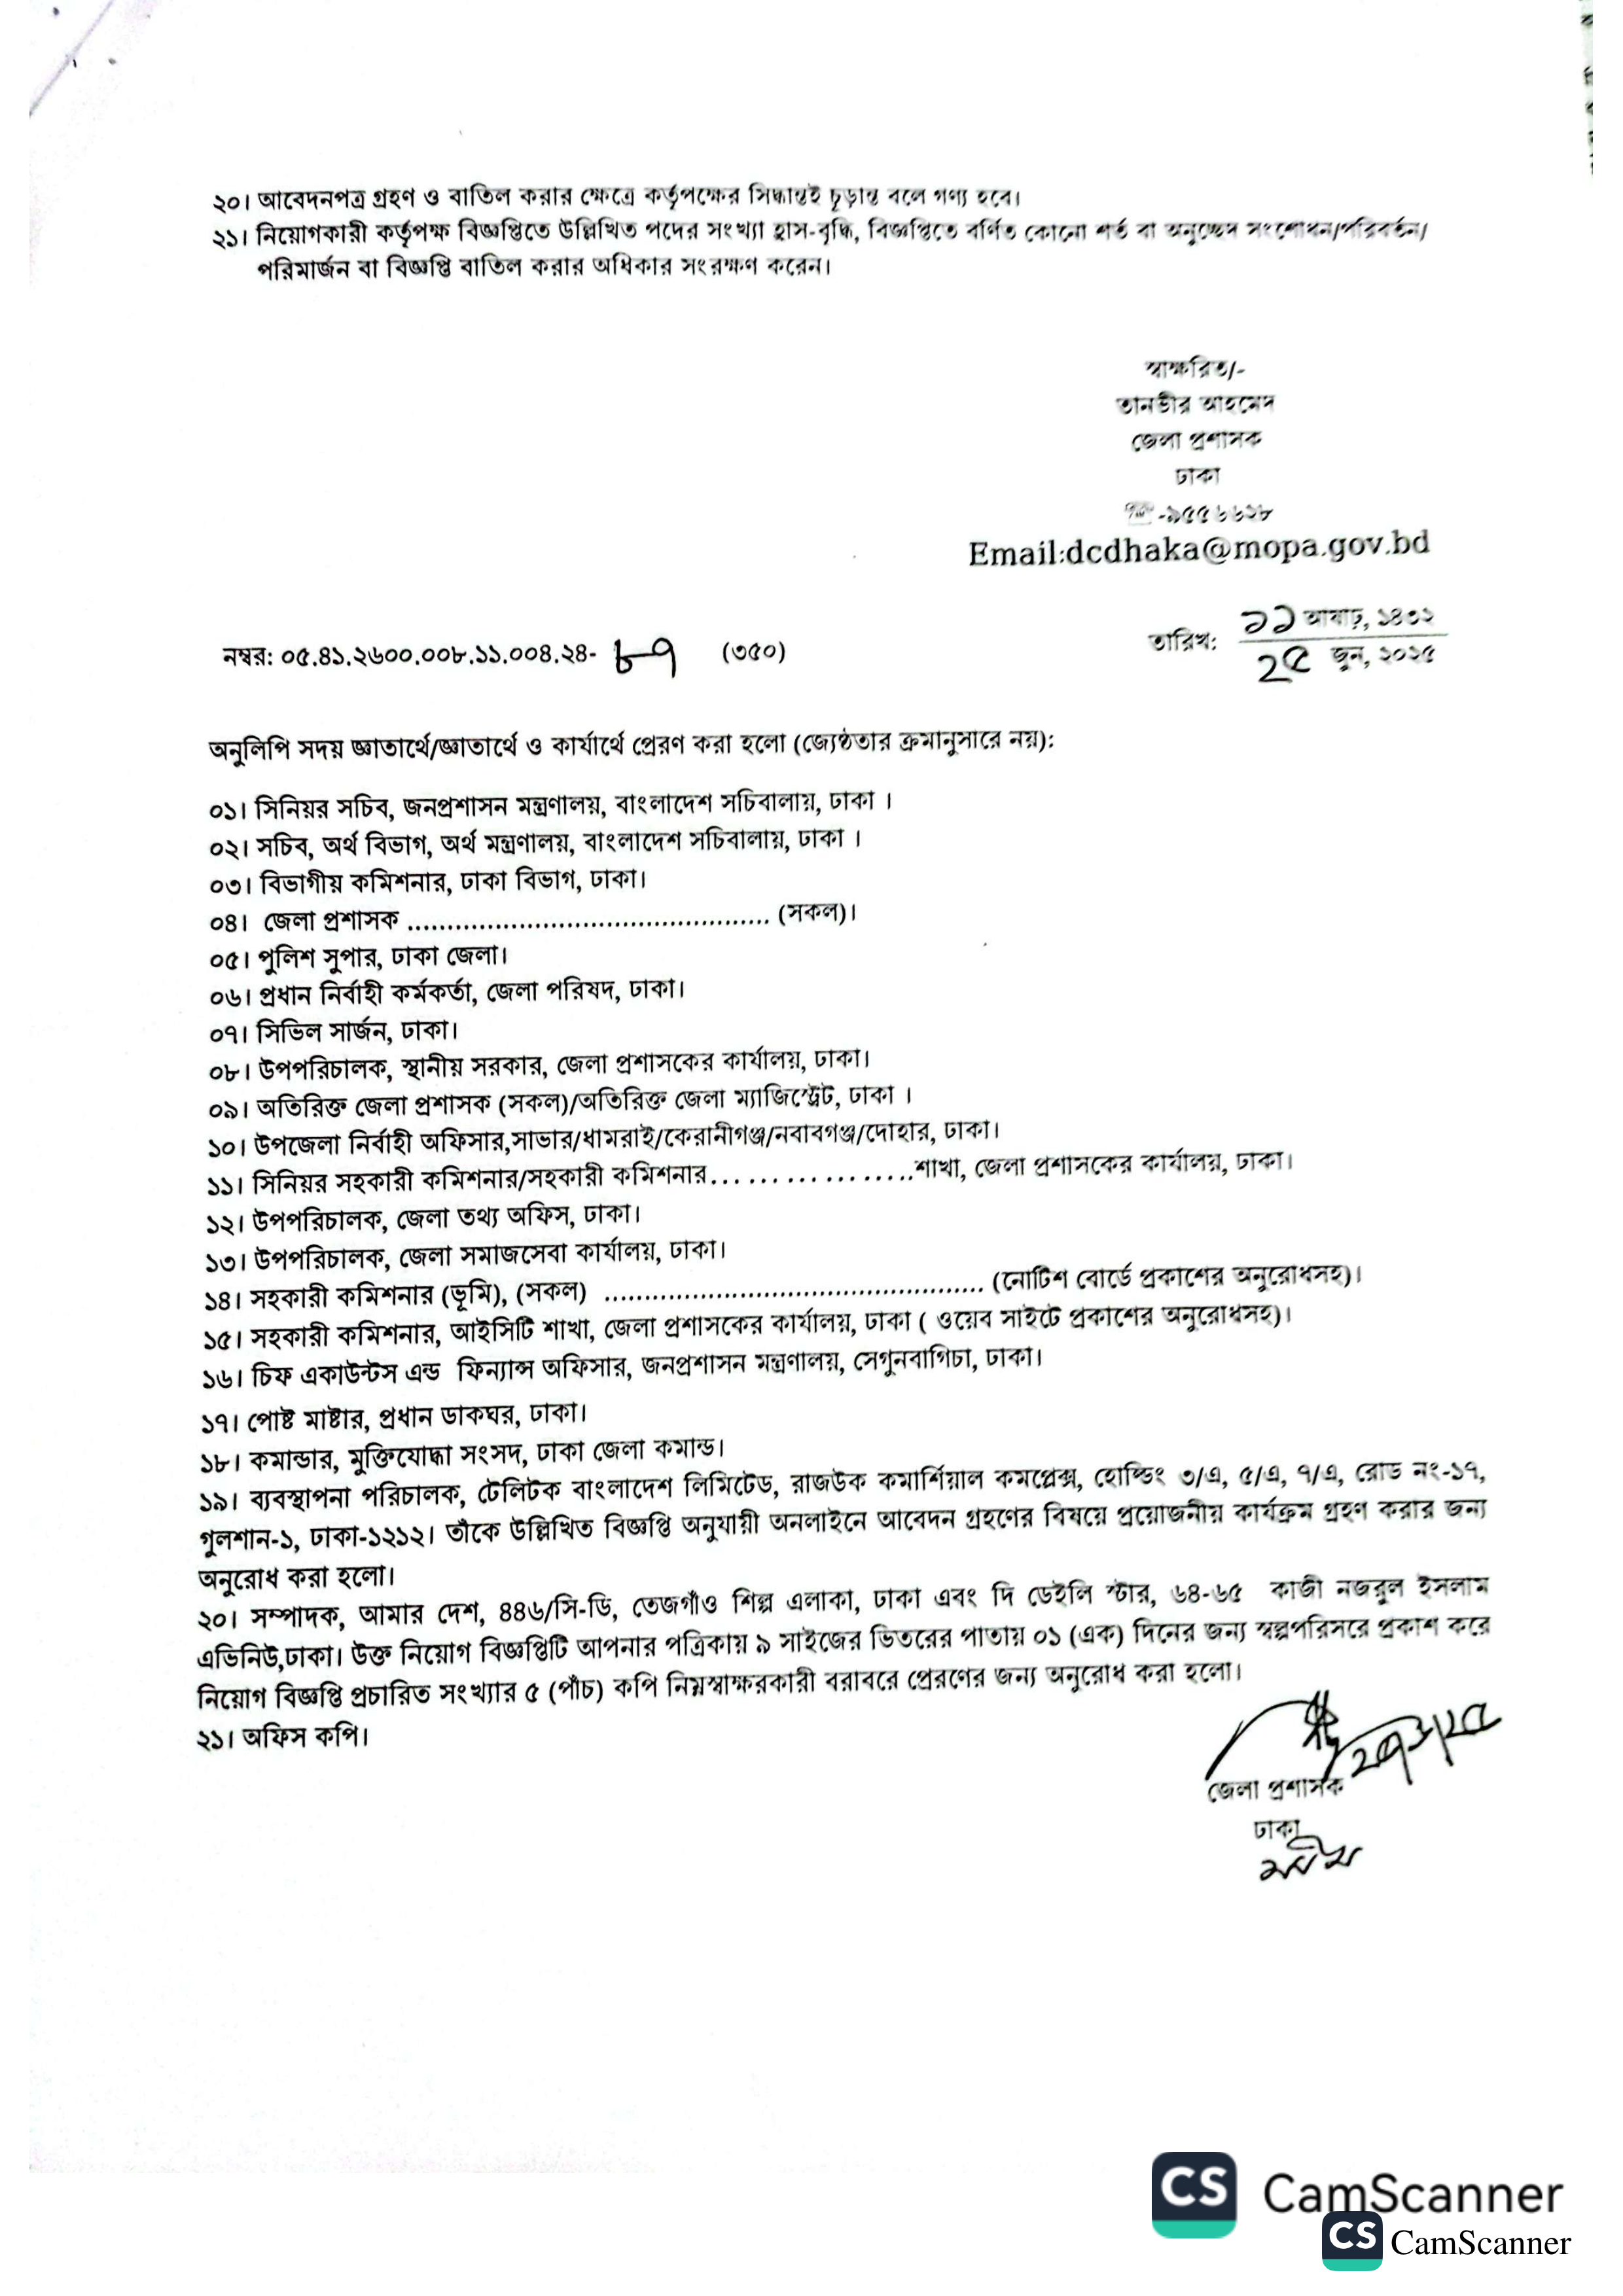 ২০। আবেদনপত্র গ্রহণ ও বাতিল করার ক্ষেত্রে কর্তৃপক্ষের সিদ্ধান্তই চূড়ান্ত বলে গণ্য হবে।
২১। নিয়োগকারী কর্তৃপক্ষ বিজ্ঞপ্তিতে উল্লিখিত পদের সংখ্যা হ্রাস-বৃদ্ধি, বিজ্ঞপ্তিতে বর্ণিত কোনো শর্ত বা অনুচ্ছেদ সংশোধন/পরিবর্তন/
পরিমার্জন বা বিজ্ঞপ্তি বাতিল করার অধিকার সংরক্ষণ করেন।
স্বাক্ষরিত/-
তানভীর আহমেদ
জেলা প্রশাসক
ঢাকা
☏-৯৫৫৬৬২৮
Email:dcdhaka@mopa.gov.bd
তারিখ: ১১ আষাঢ়, ১৪৩২
২৫ জুন, ২০২৫
নম্বর: ০৫.৪১.২৬০০.০০৮.১১.০০৪.২৪- ৮৭ (৩৫০)
অনুলিপি সদয় জ্ঞাতার্থে/জ্ঞাতার্থে ও কার্যার্থে প্রেরণ করা হলো (জ্যেষ্ঠতার ক্রমানুসারে নয়):
০১। সিনিয়র সচিব, জনপ্রশাসন মন্ত্রণালয়, বাংলাদেশ সচিবালায়, ঢাকা ।
০২। সচিব, অর্থ বিভাগ, অর্থ মন্ত্রণালয়, বাংলাদেশ সচিবালায়, ঢাকা ।
০৩। বিভাগীয় কমিশনার, ঢাকা বিভাগ, ঢাকা।
০৪। জেলা প্রশাসক ............................................. (সকল)।
০৫। পুলিশ সুপার, ঢাকা জেলা।
০৬। প্রধান নির্বাহী কর্মকর্তা, জেলা পরিষদ, ঢাকা।
০৭। সিভিল সার্জন, ঢাকা।
০৮। উপপরিচালক, স্থানীয় সরকার, জেলা প্রশাসকের কার্যালয়, ঢাকা।
০৯। অতিরিক্ত জেলা প্রশাসক (সকল)/অতিরিক্ত জেলা ম্যাজিস্ট্রেট, ঢাকা ।
১০। উপজেলা নির্বাহী অফিসার,সাভার/ধামরাই/কেরানীগঞ্জ/নবাবগঞ্জ/দোহার, ঢাকা।
১১। সিনিয়র সহকারী কমিশনার/সহকারী কমিশনার...................শাখা, জেলা প্রশাসকের কার্যালয়, ঢাকা।
১২। উপপরিচালক, জেলা তথ্য অফিস, ঢাকা।
১৩। উপপরিচালক, জেলা সমাজসেবা কার্যালয়, ঢাকা।
১৪। সহকারী কমিশনার (ভূমি), (সকল) ............................................... (নোটিশ বোর্ডে প্রকাশের অনুরোধসহ)।
১৫। সহকারী কমিশনার, আইসিটি শাখা, জেলা প্রশাসকের কার্যালয়, ঢাকা ( ওয়েব সাইটে প্রকাশের অনুরোধসহ)।
১৬। চিফ একাউন্টস এন্ড ফিন্যান্স অফিসার, জনপ্রশাসন মন্ত্রণালয়, সেগুনবাগিচা, ঢাকা।
১৭। পোষ্ট মাষ্টার, প্রধান ডাকঘর, ঢাকা।
১৮। কমান্ডার, মুক্তিযোদ্ধা সংসদ, ঢাকা জেলা কমান্ড।
১৯। ব্যবস্থাপনা পরিচালক, টেলিটক বাংলাদেশ লিমিটেড, রাজউক কমার্শিয়াল কমপ্লেক্স, হোল্ডিং ৩/এ, ৫/এ, ৭/এ, রোড নং-১৭,
গুলশান-১, ঢাকা-১২১২। তাঁকে উল্লিখিত বিজ্ঞপ্তি অনুযায়ী অনলাইনে আবেদন গ্রহণের বিষয়ে প্রয়োজনীয় কার্যক্রম গ্রহণ করার জন্য
অনুরোধ করা হলো।
২০। সম্পাদক, আমার দেশ, ৪৪৬/সি-ডি, তেজগাঁও শিল্প এলাকা, ঢাকা এবং দি ডেইলি স্টার, ৬৪-৬৫ কাজী নজরুল ইসলাম
এভিনিউ,ঢাকা। উক্ত নিয়োগ বিজ্ঞপ্তিটি আপনার পত্রিকায় ৯ সাইজের ভিতরের পাতায় ০১ (এক) দিনের জন্য স্বল্পপরিসরে প্রকাশ করে
নিয়োগ বিজ্ঞপ্তি প্রচারিত সংখ্যার ৫ (পাঁচ) কপি নিম্নস্বাক্ষরকারী বরাবরে প্রেরণের জন্য অনুরোধ করা হলো।
২১। অফিস কপি।
জেলা প্রশাসক
ঢাকা
CS CamScanner
CS CamScanner